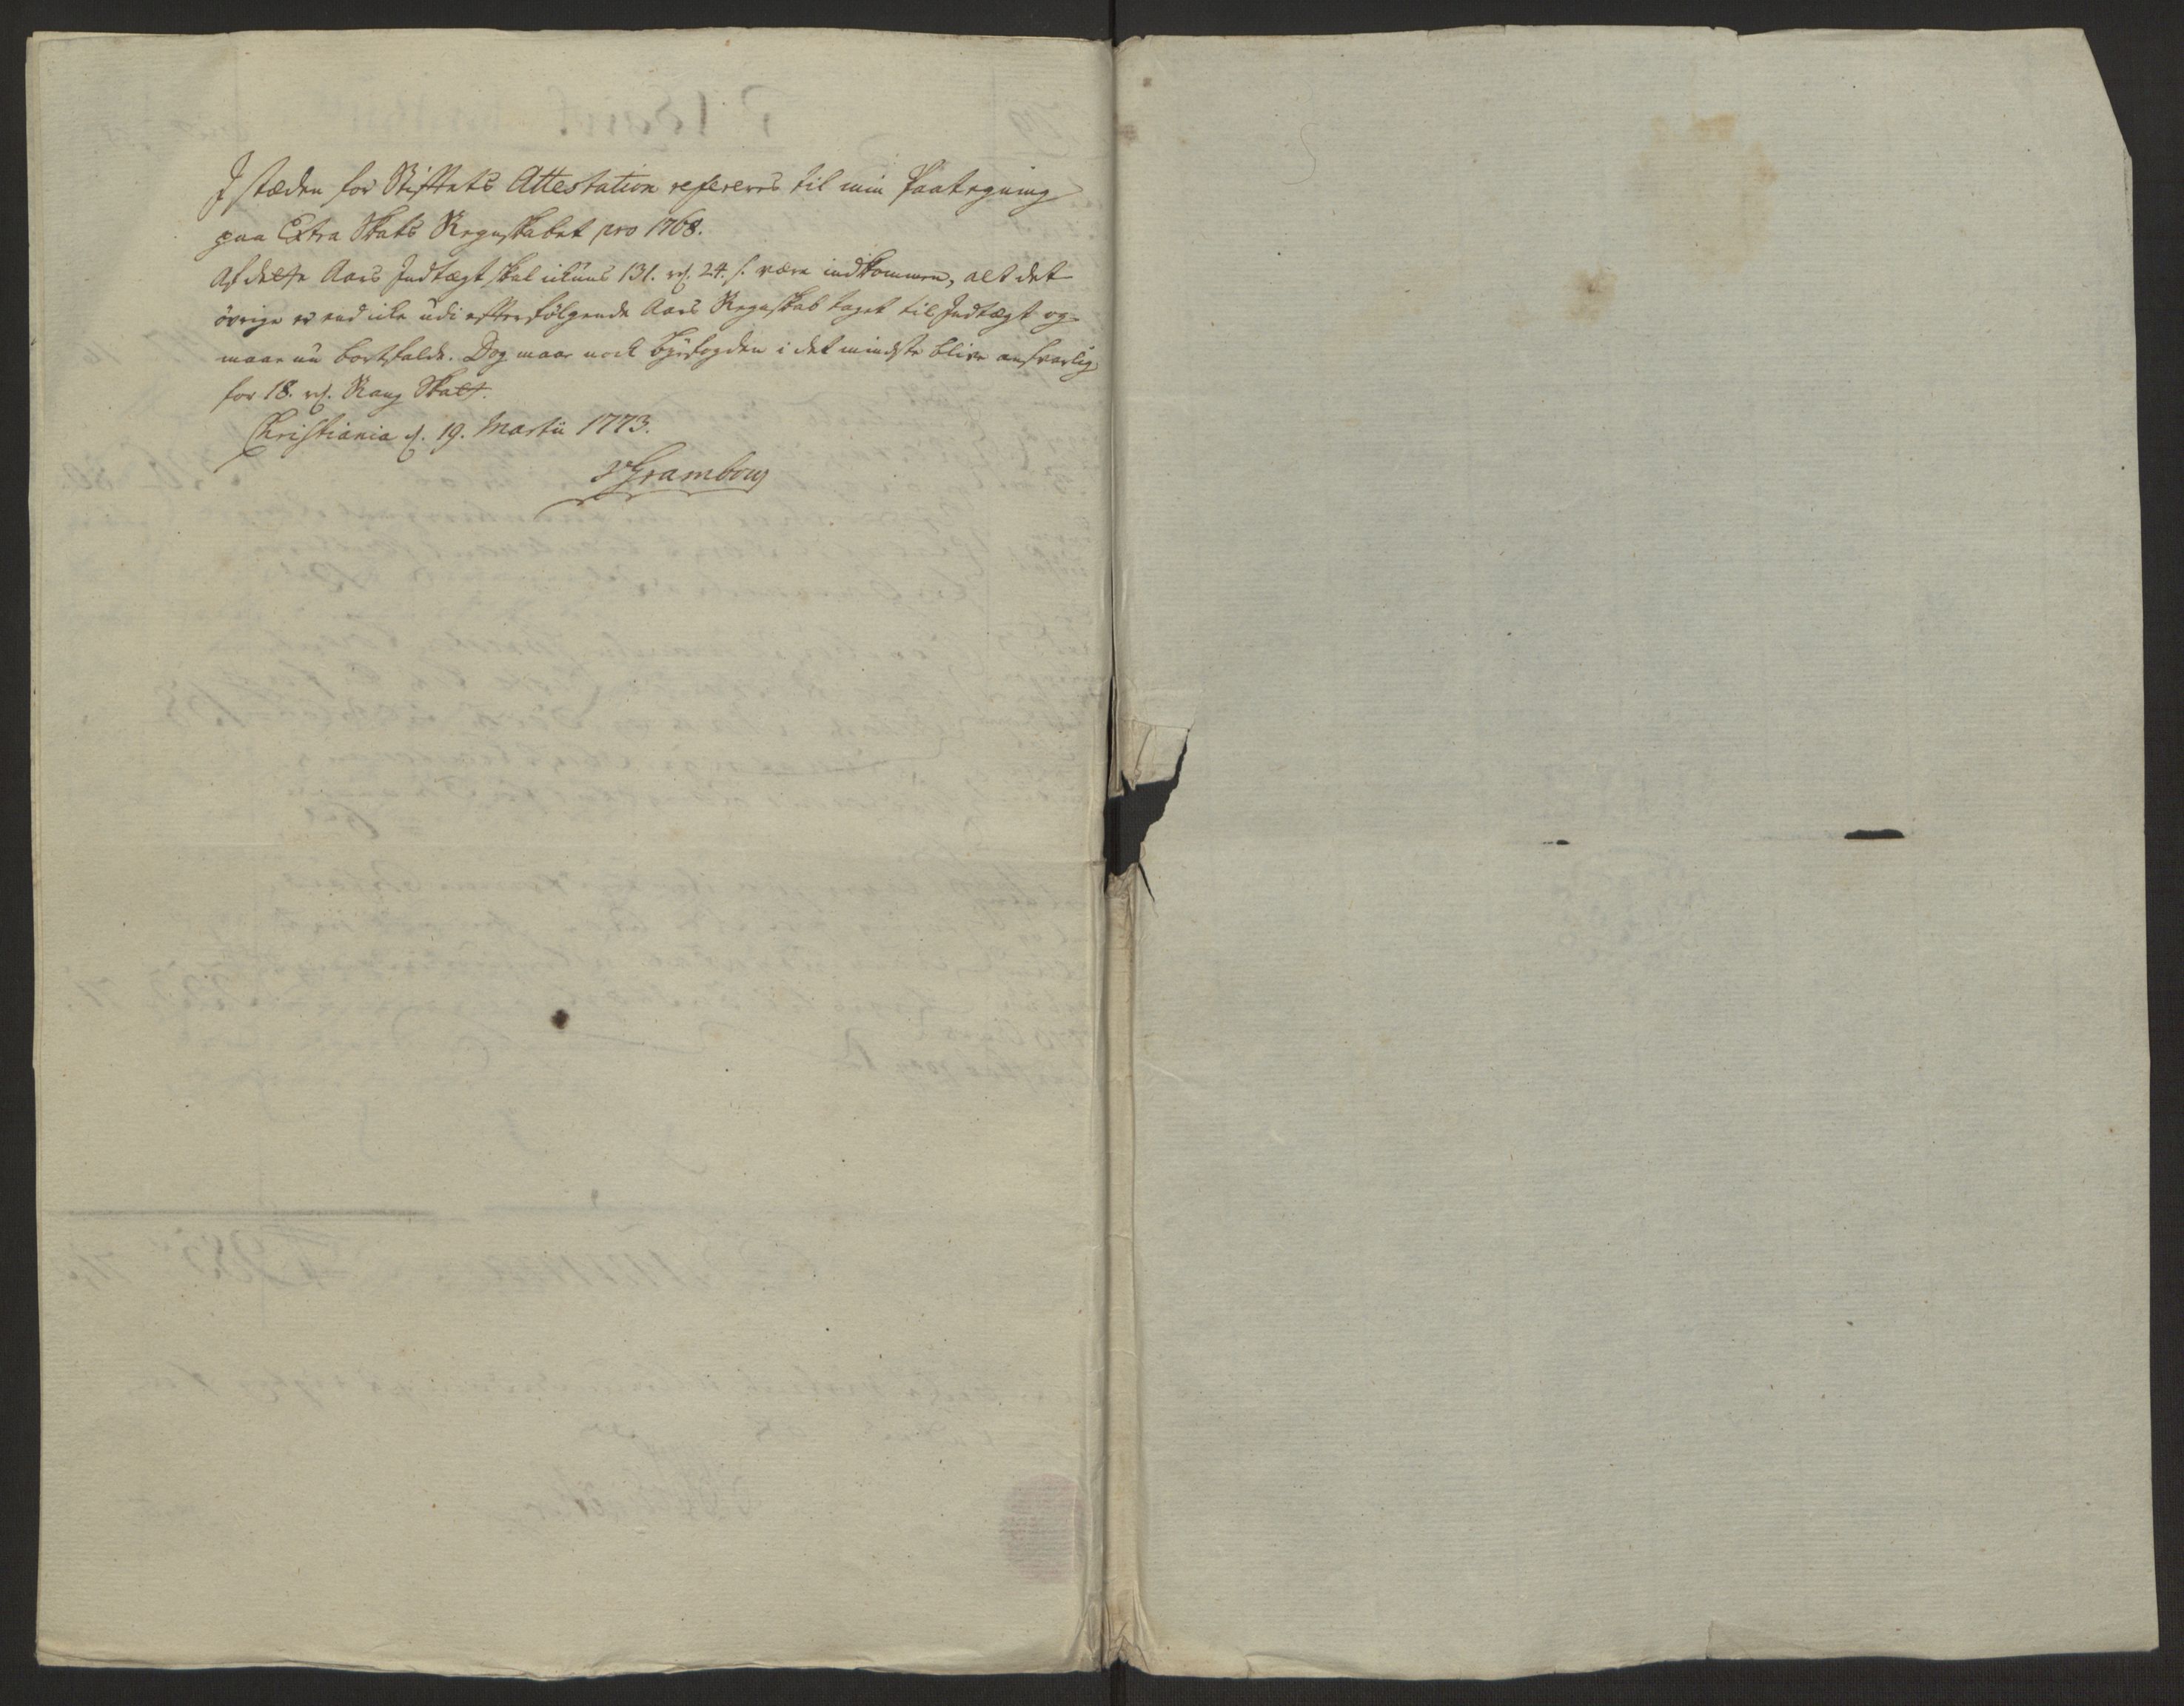 I stæden for Stiftets Attestation refereres til min Paategning
paa Extra Skats Regnskabet pro 1768.
Af dette Aars Indtægt skal ickuns 131. rd. 24. s. være indkommen, alt det
övrige er end icke udi efterfölgende Aars Regnskab taget til Indtægt og
maae nu bortfalde. Dog maae nock byefogden i det mindste blive ansvarlig
for 18. rd. Rang Skatt.
Christiania d. 19. Martii 1773.
Grambow